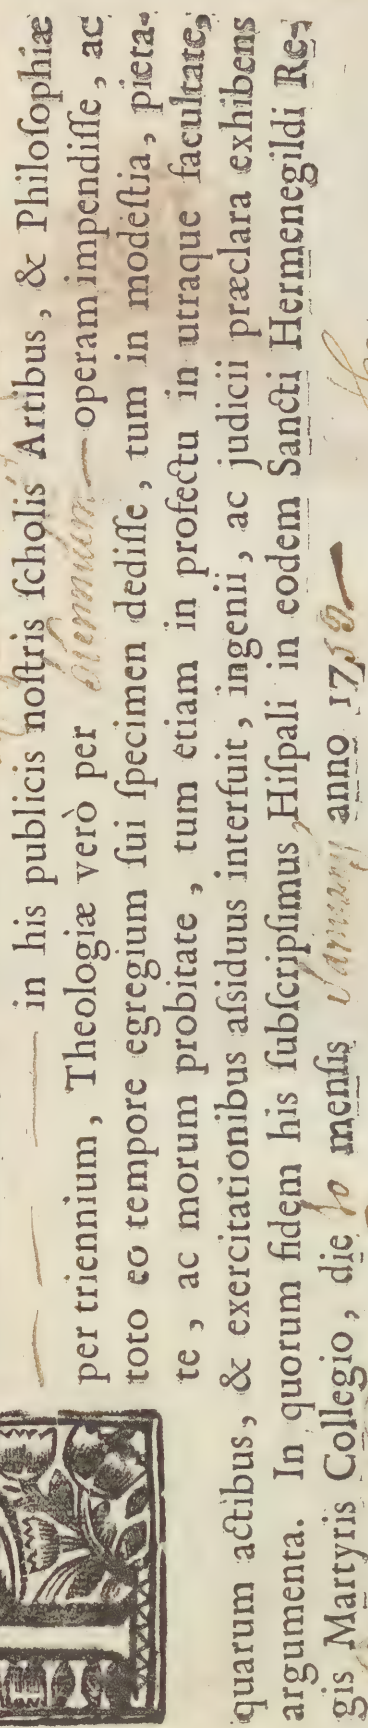 in his publicis noſtris ſcholis Artibus, & Philoſophiæ
per triennium, Theologiæ verò per operam impendiſſe, ac
toto eo tempore egregium ſui ſpecimen dediſſe, tum in modeſtia, pieta-
te, ac morum probitate, tum etiam in profectu in utraque facultate,
quarum actibus, & exercitationibus aſsiduus interfuit, ingenii, ac judicii præclara exhibens
argumenta. In quorum fidem his ſubſcripſimus, Hiſpali in eodem Sancti Hermenegildi Re-
gis Martyris Collegio, die menſis anno 17